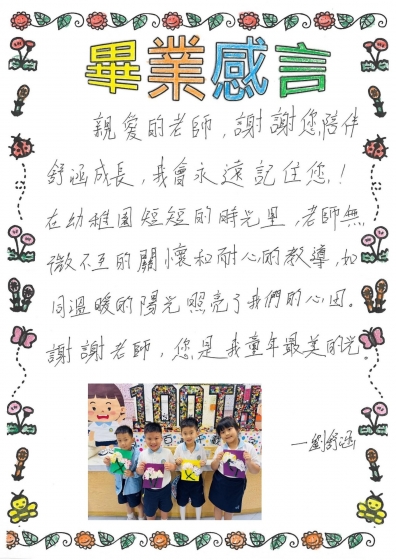 畢業感言
親愛的老師，謝謝您陪伴
舒涵成長，我會永遠記住您！
在幼稚園短短的時光里，老師無
微不至的關懷和耐心的教導，如
同溫暖的陽光照亮了我們的心田。
謝謝老師，您是我童年最美的光
100TH
一劉舒涵